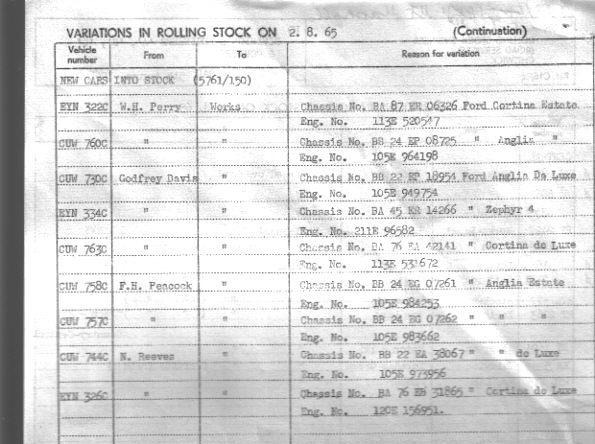 VARIATIONS IN ROLLING STOCK ON 2. 8. 65 (Continuation)
Vehicle number From To Reason for variation
NEW CARS INTO STOCK (5761/150)
EYN 322C W.H. Perry Works Chassis No. BA 87 ER 06326 Ford Cortina Estate
Eng. No. 113E 520547
CUW 760C " " Chassis No. BB 24 EP 08725 " Anglia "
Eng. No. 105E 964198
CUW 730C Godfrey Davis " Chassis No. BB 22 EP 18954 Ford Anglia De Luxe
Eng. No. 105E 949754
EYN 334C " " Chassis No. BA 45 14266 " Zephyr 4
Eng. No. 211E 96582
CUW 763C " " Chassis No. BA 76 EA 42141 " Cortina de Luxe
Eng. No. 113E 531672
CUW 758C F.H. Peacock " Chassis No. BB 24 EG 07261 " Anglia Estate
Eng. No. 105E 984253
CUW 757C " " Chassis No. BB 24 EG 07262 " " "
Eng. No. 105E 983662
CUW 744C N. Reeves " Chassis No. BB 22 EA 38067 " " de Luxe
Eng. No. 105E 973956
EYN 326C " " Chassis No. BA 76 EB 31865 " Cortina de Luxe
Eng. No. 120E 156951.